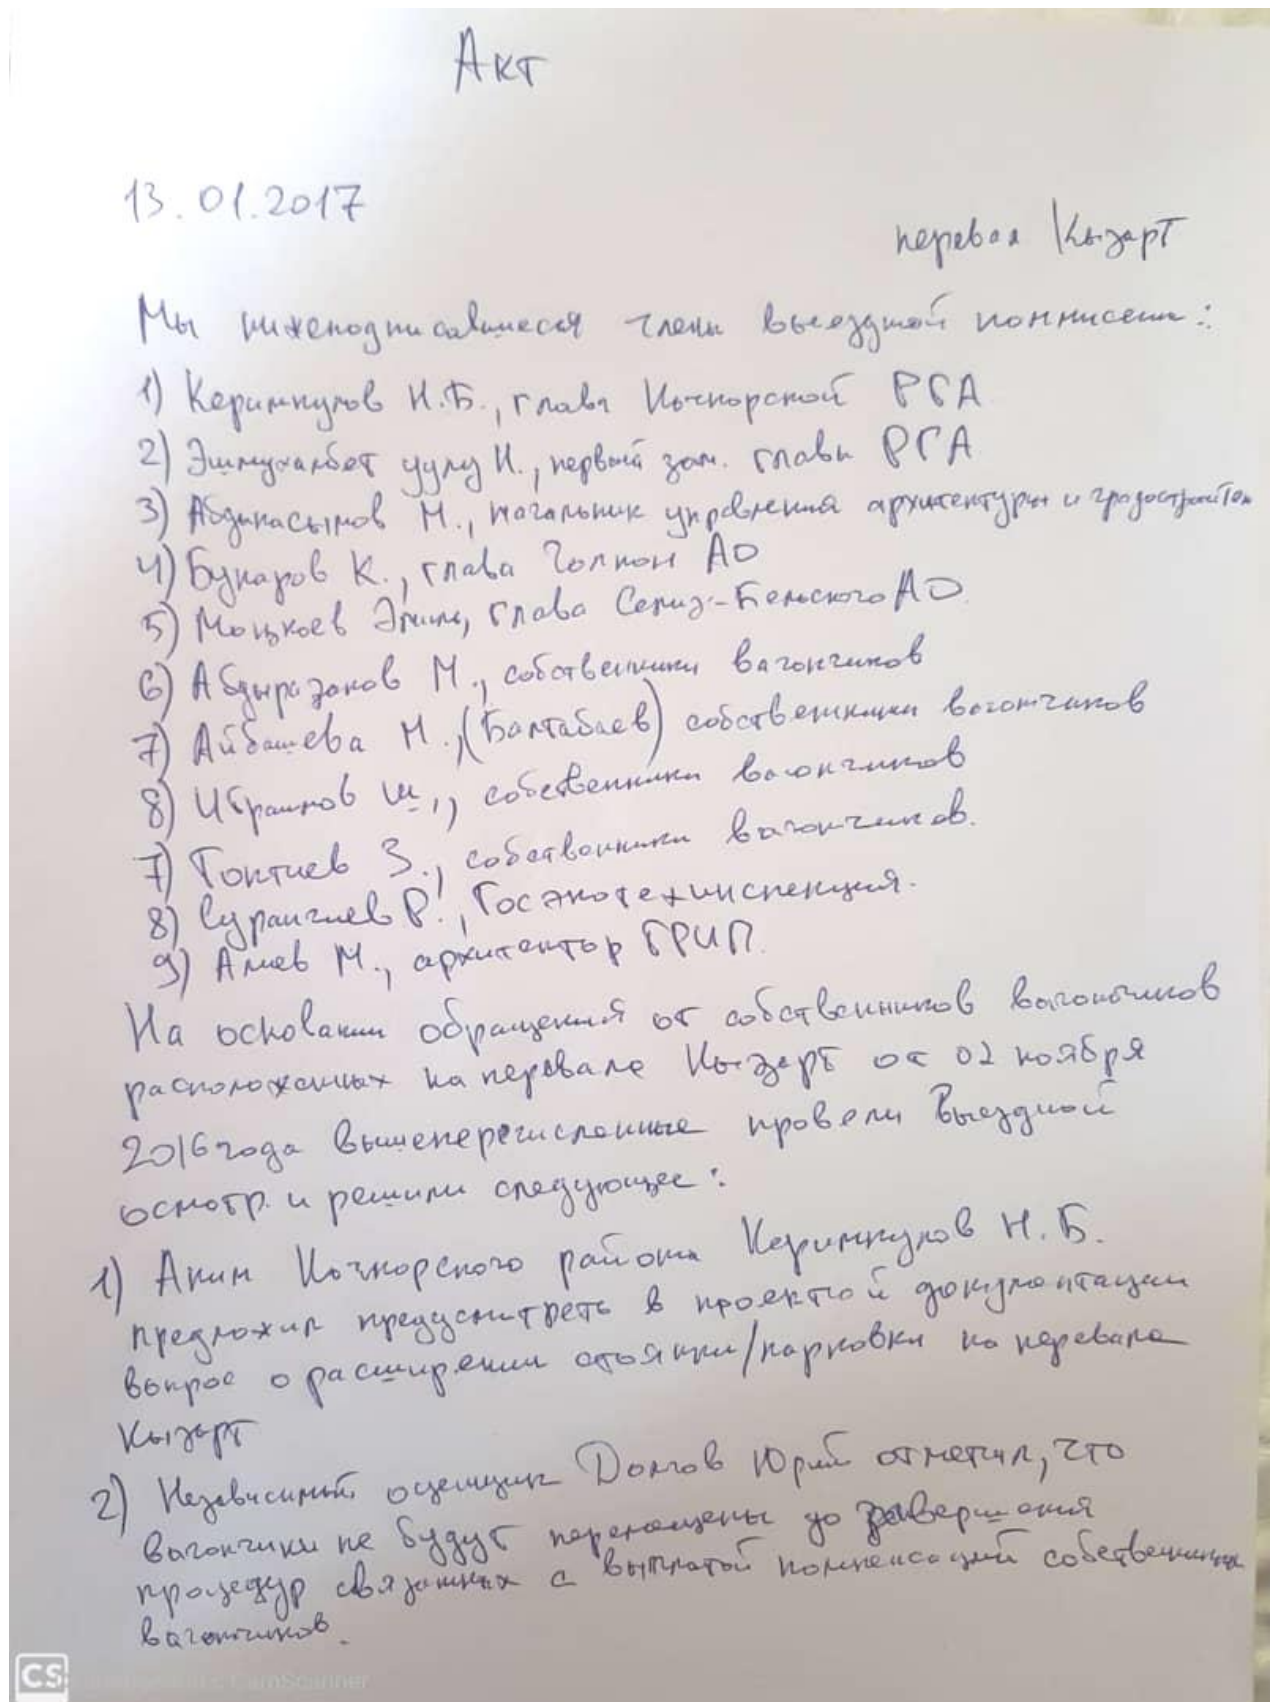 Акт
13.01.2017
перевал Кызарт
Мы нижеподписавшиеся члены выездной комиссии:
1) Керимкулов Н.Б., глава Кочкорской РГА
2) Эшмухамбет уулу И., первый зам. главы РГА
3) Абдикасымов М., начальник управления архитектуры и градостроител
4) Букаров К., глава Чолпон АО
5) Моңкоев Эмиль, глава Семиз-Бельского АО
6) Абдыразаков М., собственники вагончиков
7) Айбашева М., (Балтабаев) собственники вагончиков
8) Ибраимов Ш., собственники вагончиков
7) Токтиев З., собственники вагончиков.
8) Суранчиев Р., Госэкотехинспекция.
9) Алиев М., архитектор ГРИП.
На основании обращения от собственников вагончиков
расположенных на перевале Кызарт от 02 ноября
2016 года вышеперечисленные провели выездной
осмотр. и решили следующее:
1) Аким Кочкорского района Керимкулов Н.Б.
предложил предусмотреть в проектной документации
вопрос о расширении стоянки/парковки на перевале
Кызарт
2) Независимый оценщик Долгов Юрий отметил, что
вагончики не будут перемещены до завершения
процедур связанных с выплатой компенсаций собственникам
вагончиков.
CS
CamScanner